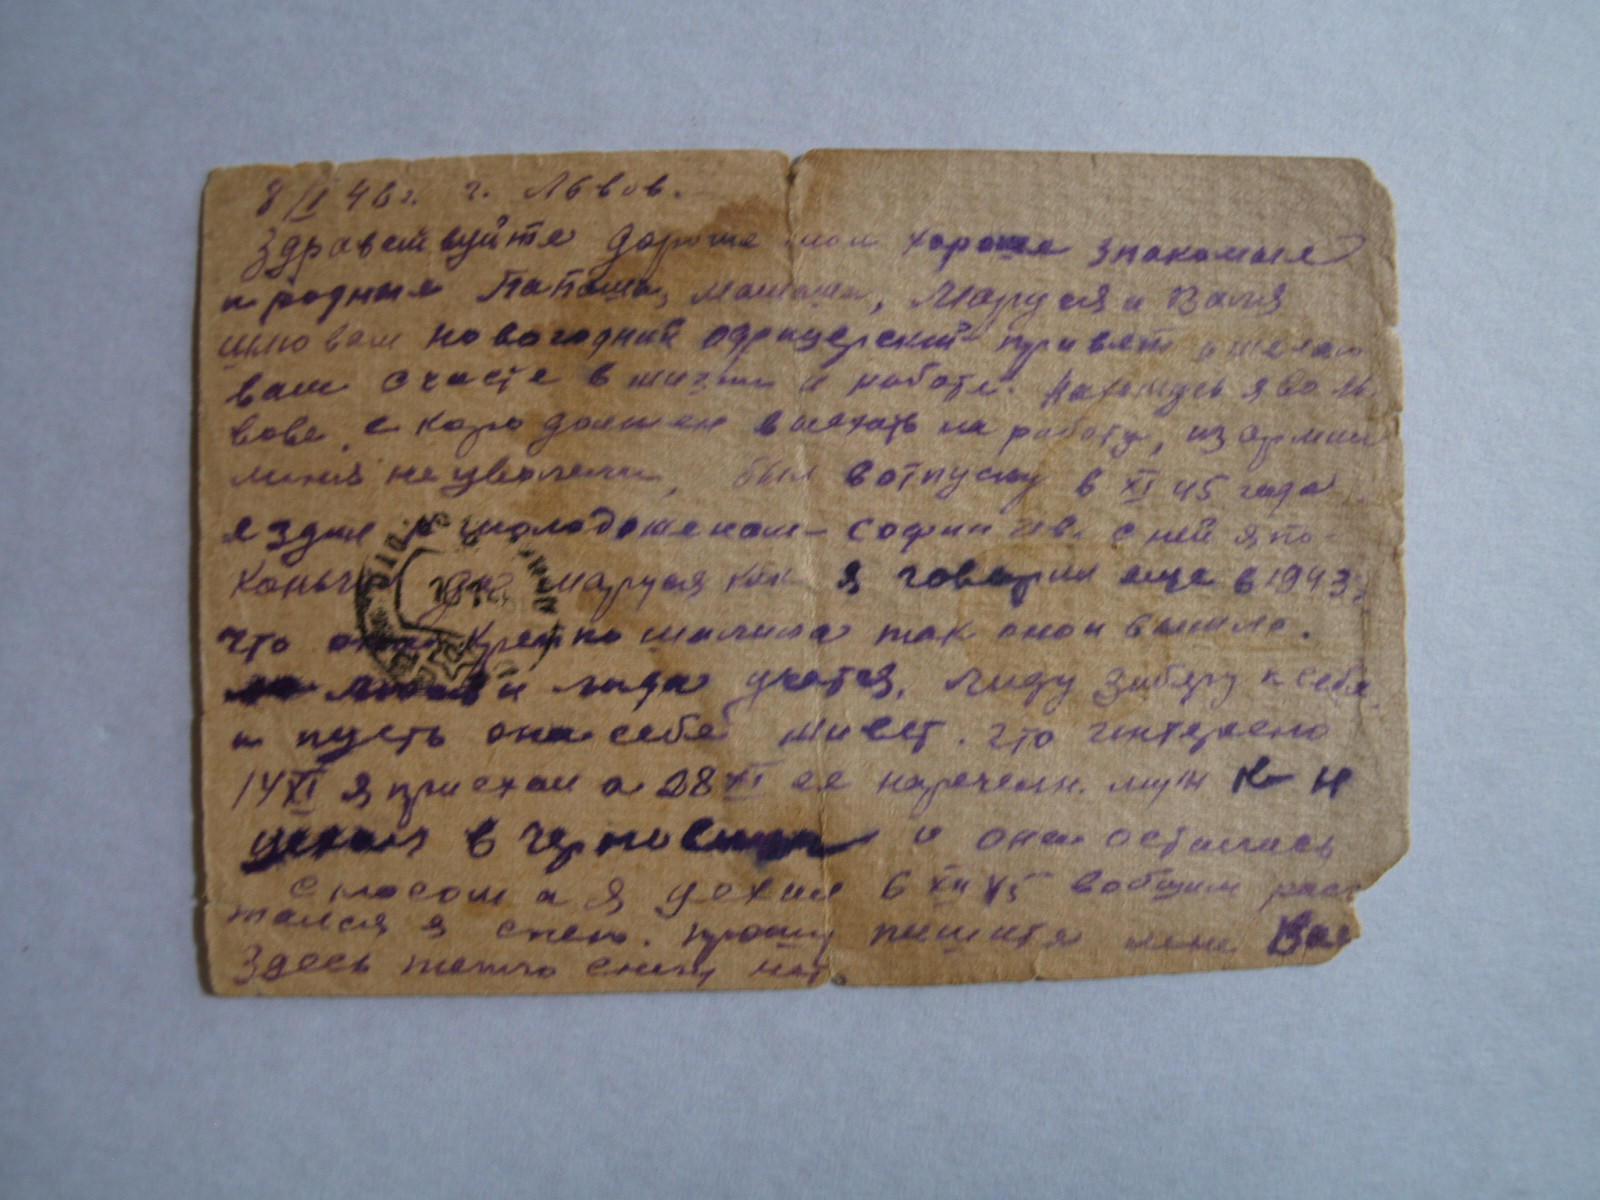 8/I 46г. г. Львов.
Здравствуйте дорогие мои хорошие знакомые
и родные Папаша, мамаша, Маруся и Валя
шлю вам новогодний офицерский привет и желаю
вам счастье в жизни и работе. Нахожусь я во Ль
вове, скоро должен выехать на работу, из армии
меня не уволили, был в отпуску в XI 45 года
ездил к молодоженам - София Ив. с ней я по-
конч да Маруся как я говорил еще в 1943г
что крепко так оно и вышло.
и Лида учатся, Лиду заберу к себе
и пусть она себе живет. Что интересно
14 XI я приехал а 28 XI ее наречен. муж К-н
уехал в и она осталась
с носом а я уехал 6 XII 45 вобщим расс
тался я с нею. Прошу пишите мне Вас
Здесь тепло снегу нет.